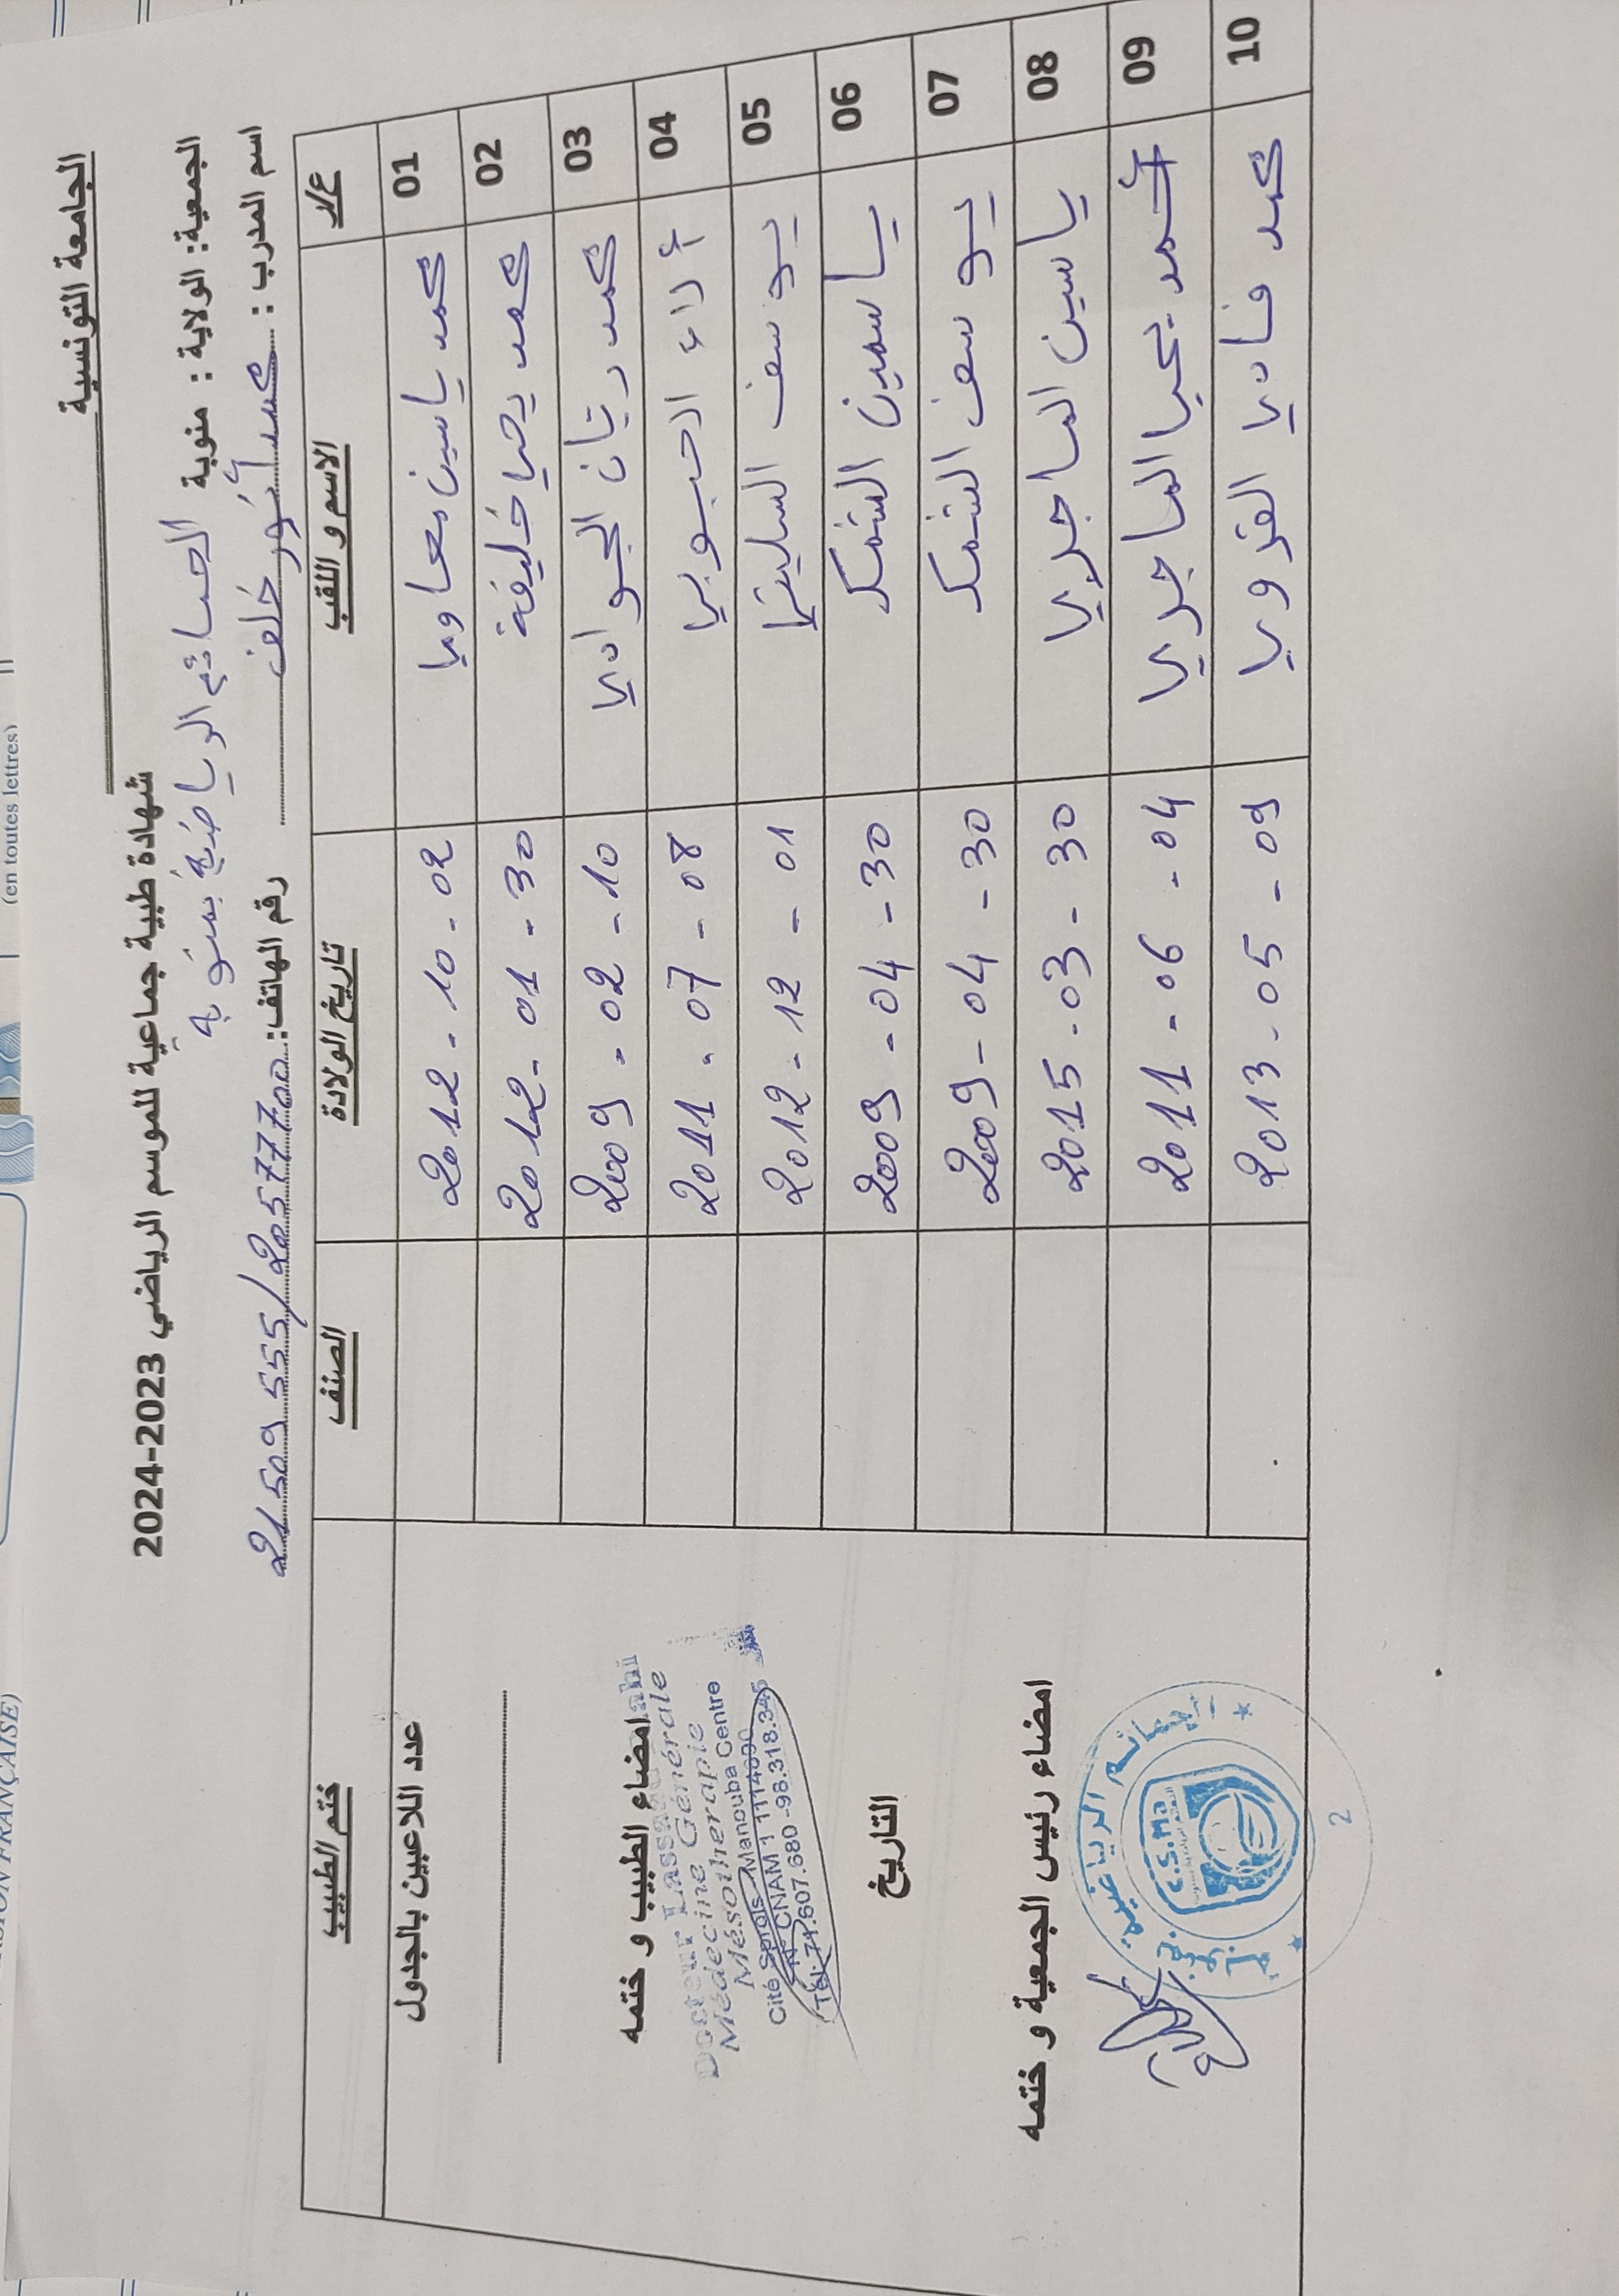 (en toutes lettres)
الجامعة التونسية
شهادة طبية جماعية للموسم الرياضي 2023-2024
الجمعية: الولاية : منوبة الحسائم الرياضية بمنوبة
اسم المدرب : محمد أنور خلف رقم الهاتف: 21509555/20577700
ع/ر الاسم و اللقب تاريخ الولادة الصنف ختم الطبيب
01 محمد ياسين معاوي 2012 - 10 - 02
02 محمد يحيا خليفة 2012 - 01 - 30
03 محمد ريان الجوادي 2009 - 02 - 10
04 ألاء الحبوبي 2011 - 07 - 08
05 يوسف السليتي 2012 - 12 - 01
06 ياسمين الشمك 2009 - 04 - 30
07 يوسف الشمك 2009 - 04 - 30
08 ياسين الماجري 2015 - 03 - 30
09 أحمد يحيا الماجري 2011 - 06 - 04
10 محمد فادي القروي 2013 - 05 - 09
عدد اللاعبين بالجدول
امضاء الطبيب و ختمه
Docteur Lassaad
Médecine Générale
Mésothérapie
Cité Manouba Centre
N° CNAM
Tél: 71.607.680 - 98.318.345
التاريخ
امضاء رئيس الجمعية و ختمه
الرياضية
C.S.Ma
2